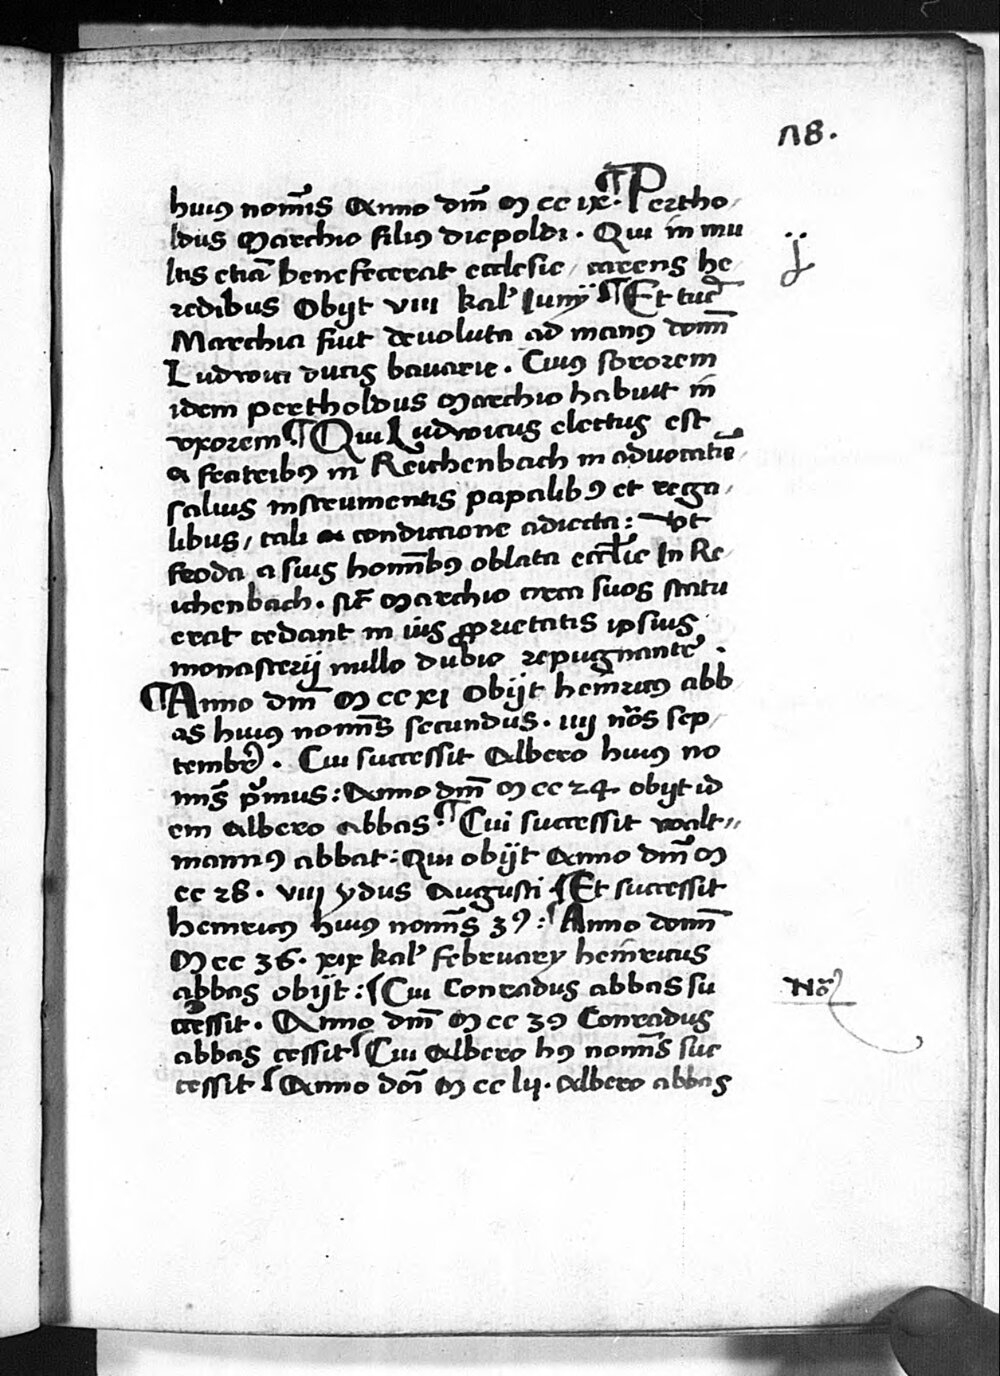 118.
huiꝯ nom̄is Anno dm̄ M cc ix · ¶ Pertho⸗
ldus Marchio filiꝯ diepoldi · Qui in mu
ltis etiā benefecerat ecclesie / carens he⸗
redibus Obijt viii kal' Iunij ¶ Et tūc
Marchia fuit deuoluta ad manꝯ domī
Ludwici ducis bauarie · Cuiꝯ sororem
idem pertholdus Marchio habuit in
vxorem ¶ Qui Ludwicus electus est
a fratribꝯ in Reichenbach in aduocatū
saluis instrumentis papalibꝯ et rega⸗
libus / tali condicione adiecta : vt
feoda a suis hom̄ibꝯ oblata eccl'ie In Re⸗
ichenbach · sic̄ Marchio circa suos statu
erat cedant in iūs ꝓprietatis ipsius
monasterij nullo dubio repugnante ·
¶ Anno dm̄ M cc xi Obijt heinricꝯ abb
as huiꝯ nom̄is secundus · iiij nōs sep⸗
tembr̄ · Cui successit Albero huiꝯ no
mis̄ p'mus : Anno dm̄ M cc 24 · obijt id
em Albero abbas · ¶ Cui successit walt⸗
mannꝯ abbat : Qui obijt Anno dm̄ M
cc 28 · viii ydus Augusti ¶ Et successit
heinricꝯ huiꝯ nom̄is 3ꝯ : ¶ Anno domī
M cc 36 · xix kal' february heinricus
abbas obijt : ¶ Cui Conradus abbas su
ccessit · Anno dm̄ M cc 39 Conradus
abbas cessit ¶ Cui Albero hꝯ nom̄is suc
cessit ¶ Anno dōi M cc lij · Albero abbas
j
Nō